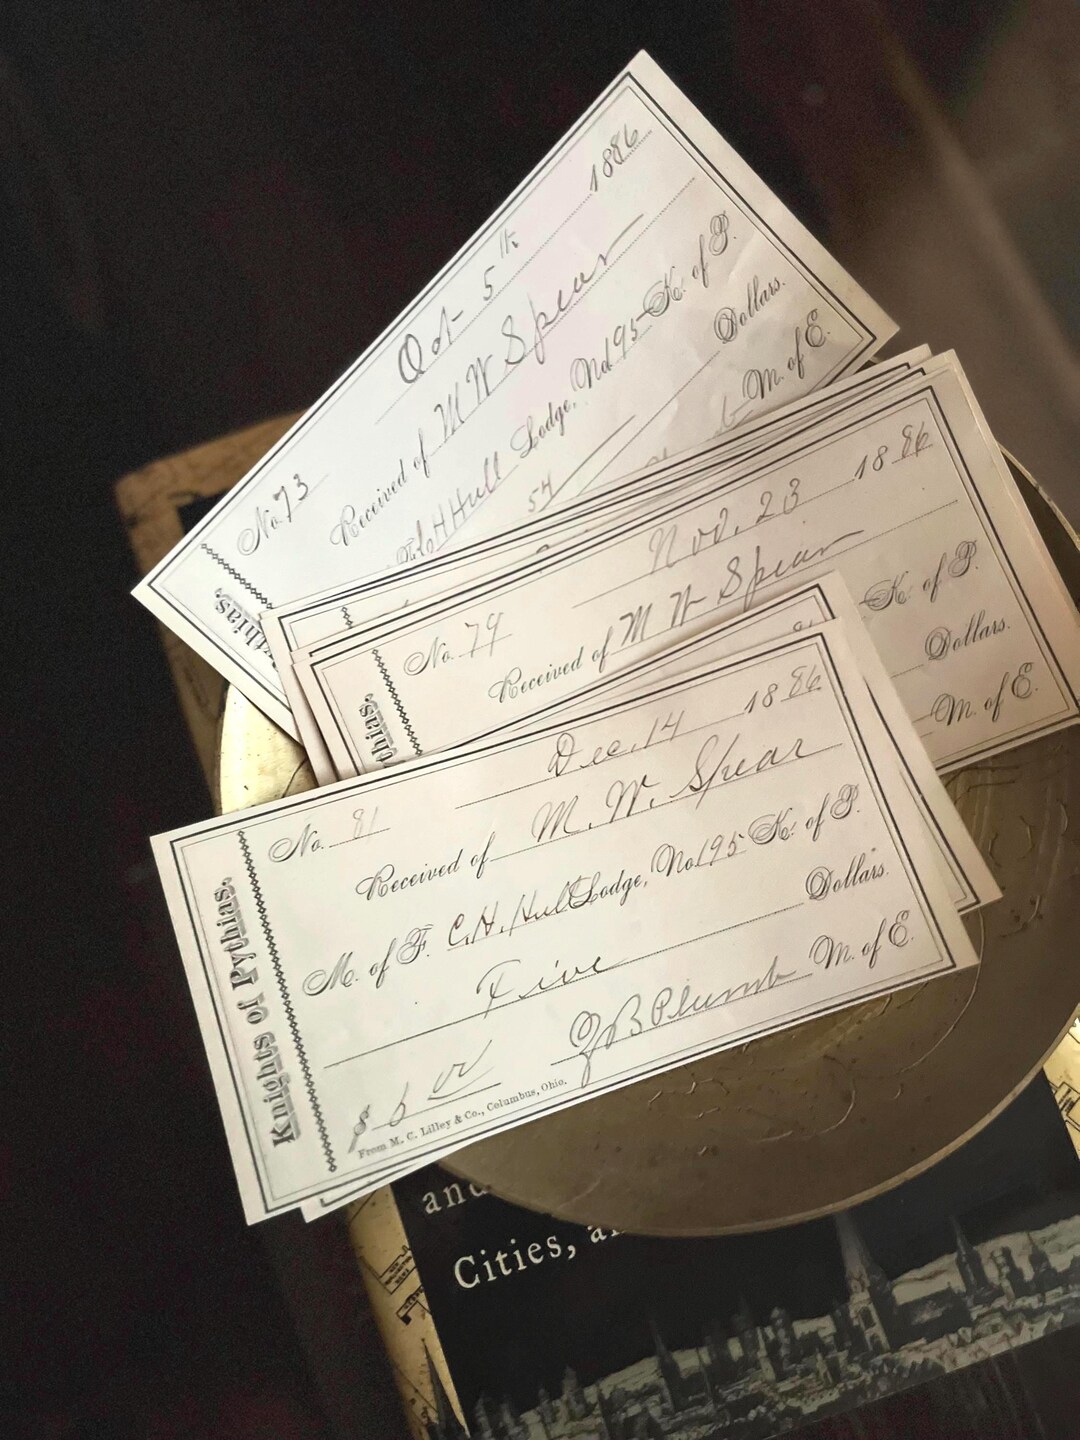 Oct 5th 1886
No. 73
Received of M W Spear
C H Hull Lodge, No 195 K. of P.
54 Dollars.
M. of E.
thias.
Nov. 23 1886
No. 79
Received of M W Spear
K. of P.
Dollars.
M. of E.
thias.
Dec. 14 1886
No. 81
Received of M. W. Spear
M. of F. C. H. Hull Lodge, No 195 K. of P.
Five Dollars.
$ 5 00 Plumb M. of E.
From M. C. Lilley & Co., Columbus, Ohio.
Knights of Pythias.
and
Cities, a